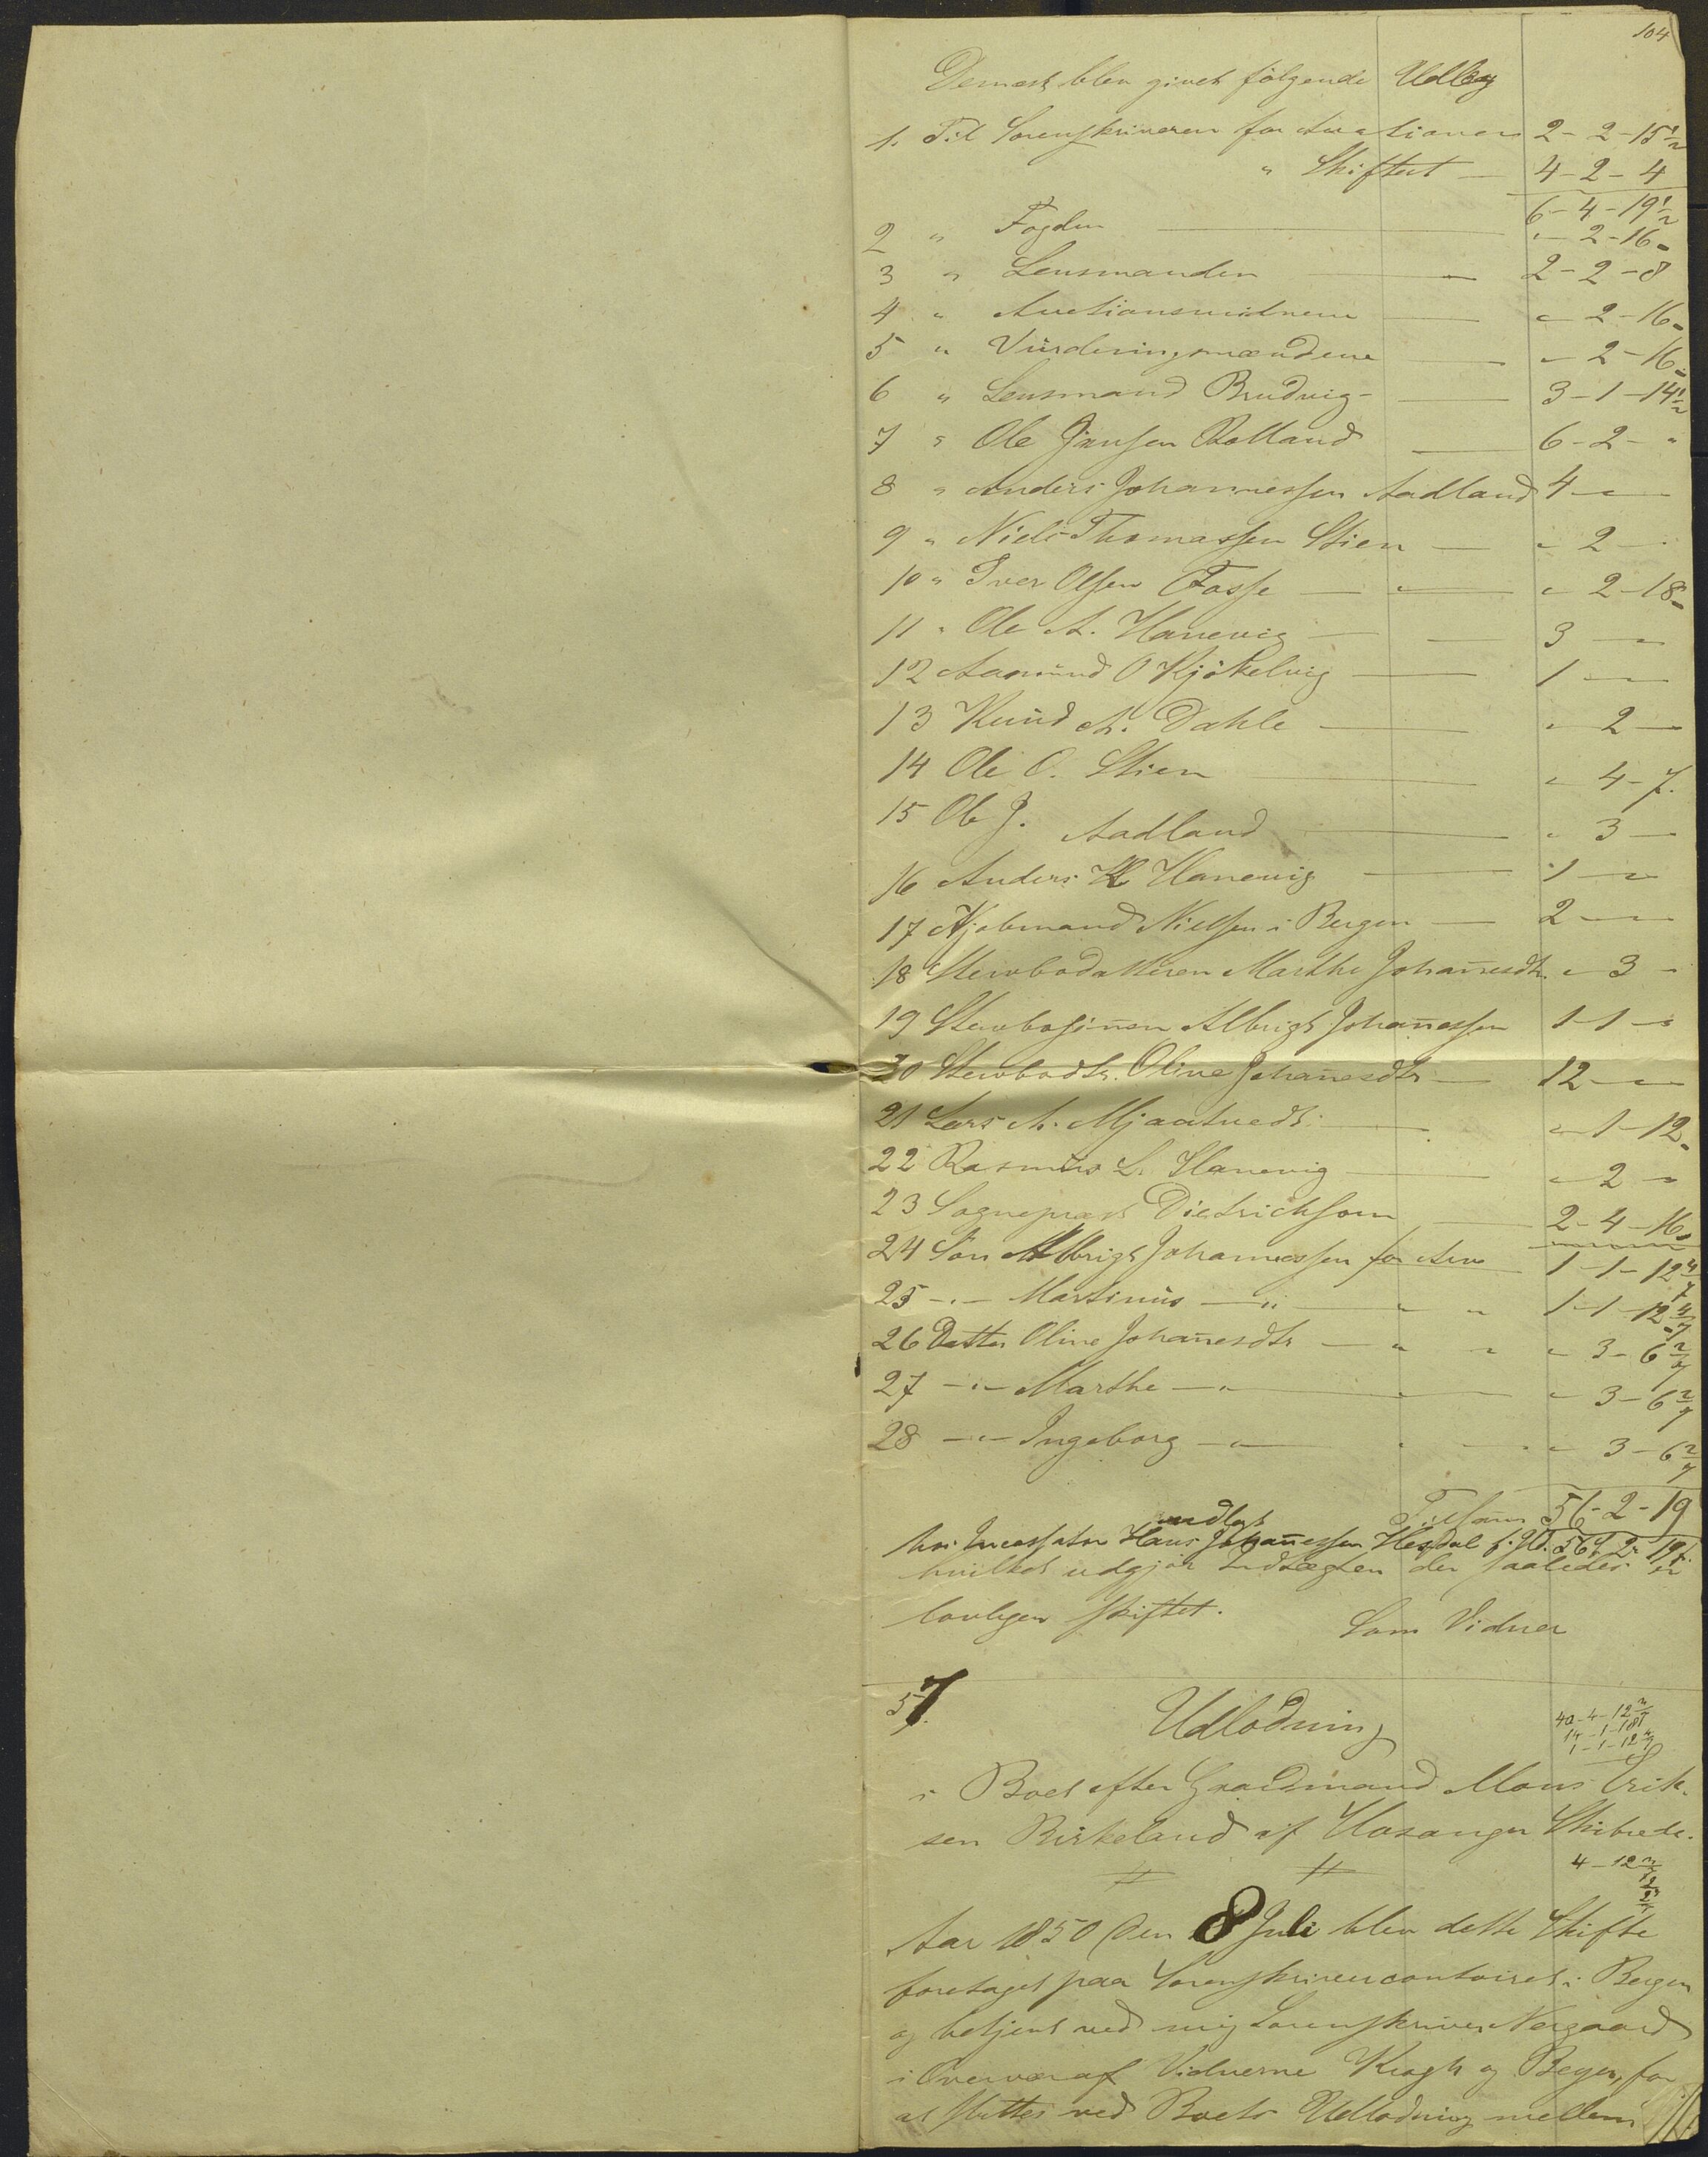 104
Dernæst blev givet følgende Udlæg
1. Til Sorenskriveren for Auctionen 2 - 2 - 15½
" Skiftet — 4 - 2 - 4
6 - 4 - 19½
2 " Fogden — " - 2 - 16 -
3 " Lensmanden — 2 - 2 - 8
4 " Auctionsvidnerne — " 2 - 16 -
5 " Vürderingsmændene — " 2 - 16 -
6 " Lensmand Brudvig - — 3 - 1 - 14½
7 " Ole Jansen Rolland — 6 - 2 - "
8 " Anders Johannessen Aadland 4 - " -
9 " Niels Thomassen Stien — " 2 - "
10 " Iver Olsen Fosse — " — " 2 - 18 -
11 " Ole A. Hanevig — — 3 - "
12 Aamund O Kjökelvig — 1 - " -
13 Knud A. Dahle — " 2 -
14 Ole O. Stien — " 4 - 7.
15 Ole J. Aadland — " 3 -
16 Anders K Hanevig — 1 - " -
17 Kjøbmand Nielsen i Bergen — 2 - " -
18 Stervbodatteren Marthe Johan̄esdtr. " 3 -
19 Stervbosön̄en Albrigt Johan̄essen 1 - 1 - "
20 Stervbodtr. Oline Johan̄esdtr — 12 - " -
21 Lars A. Mjaatvedt — " 1 - 12 -
22 Rasmus L. Hanevig — " 2 - "
23 Sognepræst Dietrichson — 2 - 4 - 16 -
24 Sön Albrigt Johannessen for Arv 1 - 1 - 12 4/7
25 - " - Martinus - " - " " 1 - 1 - 12 4/7
26 Datter Oline Johan̄esdtr — " " " 3 - 6 2/7
27 - " - Marthe - " - " " 3 - 6 2/7
28 - " - Ingeborg - " - " " 3 - 6 2/7
Tilsam̄en 56 - 2 - 19
udlagt
hvilket udgjør Indtægten der saaledes er
lovligen skiftet.
Som Vidner
57.
Udlodning
40 - 4 - 12 2/7
1 - 1 - 12 4/7
i Boet efter Graadmand Mons Erik-
sen Birkeland af Hosanger Skibrede.
4 - 12
Aar 1850 den 8 Juli blev dette Skifte
foretaget paa Sorenskrivercontoiret i Bergen
og betjent ved mig Sorenskriver Nergaard
i Overvær af Vidnerne Krogh og Beyer, for
at sluttes ved Boets Udlodning mellem